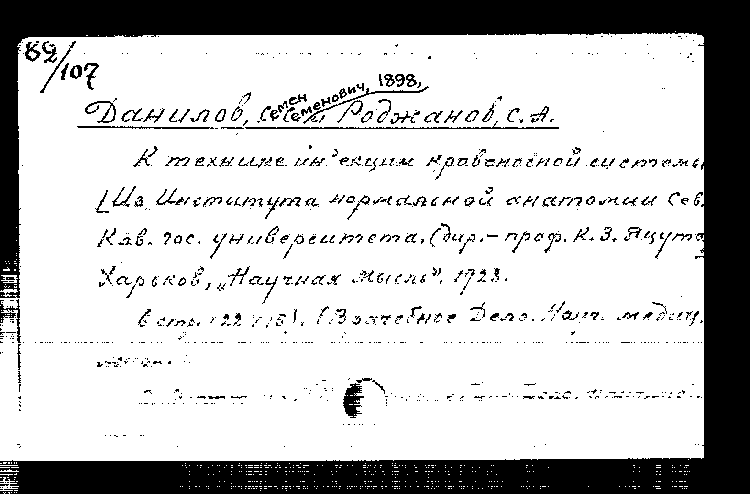 82/107
Данилов, Семен Семенович, 1898, Роджанов, С. А.
К технике ин'екции кровеносной системы
[Из Института нормальной анатомии Сев.
Кав. гос. университета. (дир. - проф. К. З. Яцута
Харьков, „Научная мысль". 1928.
8 стр. (22 х 15). (Врачебное Дело. Науч. медиц.